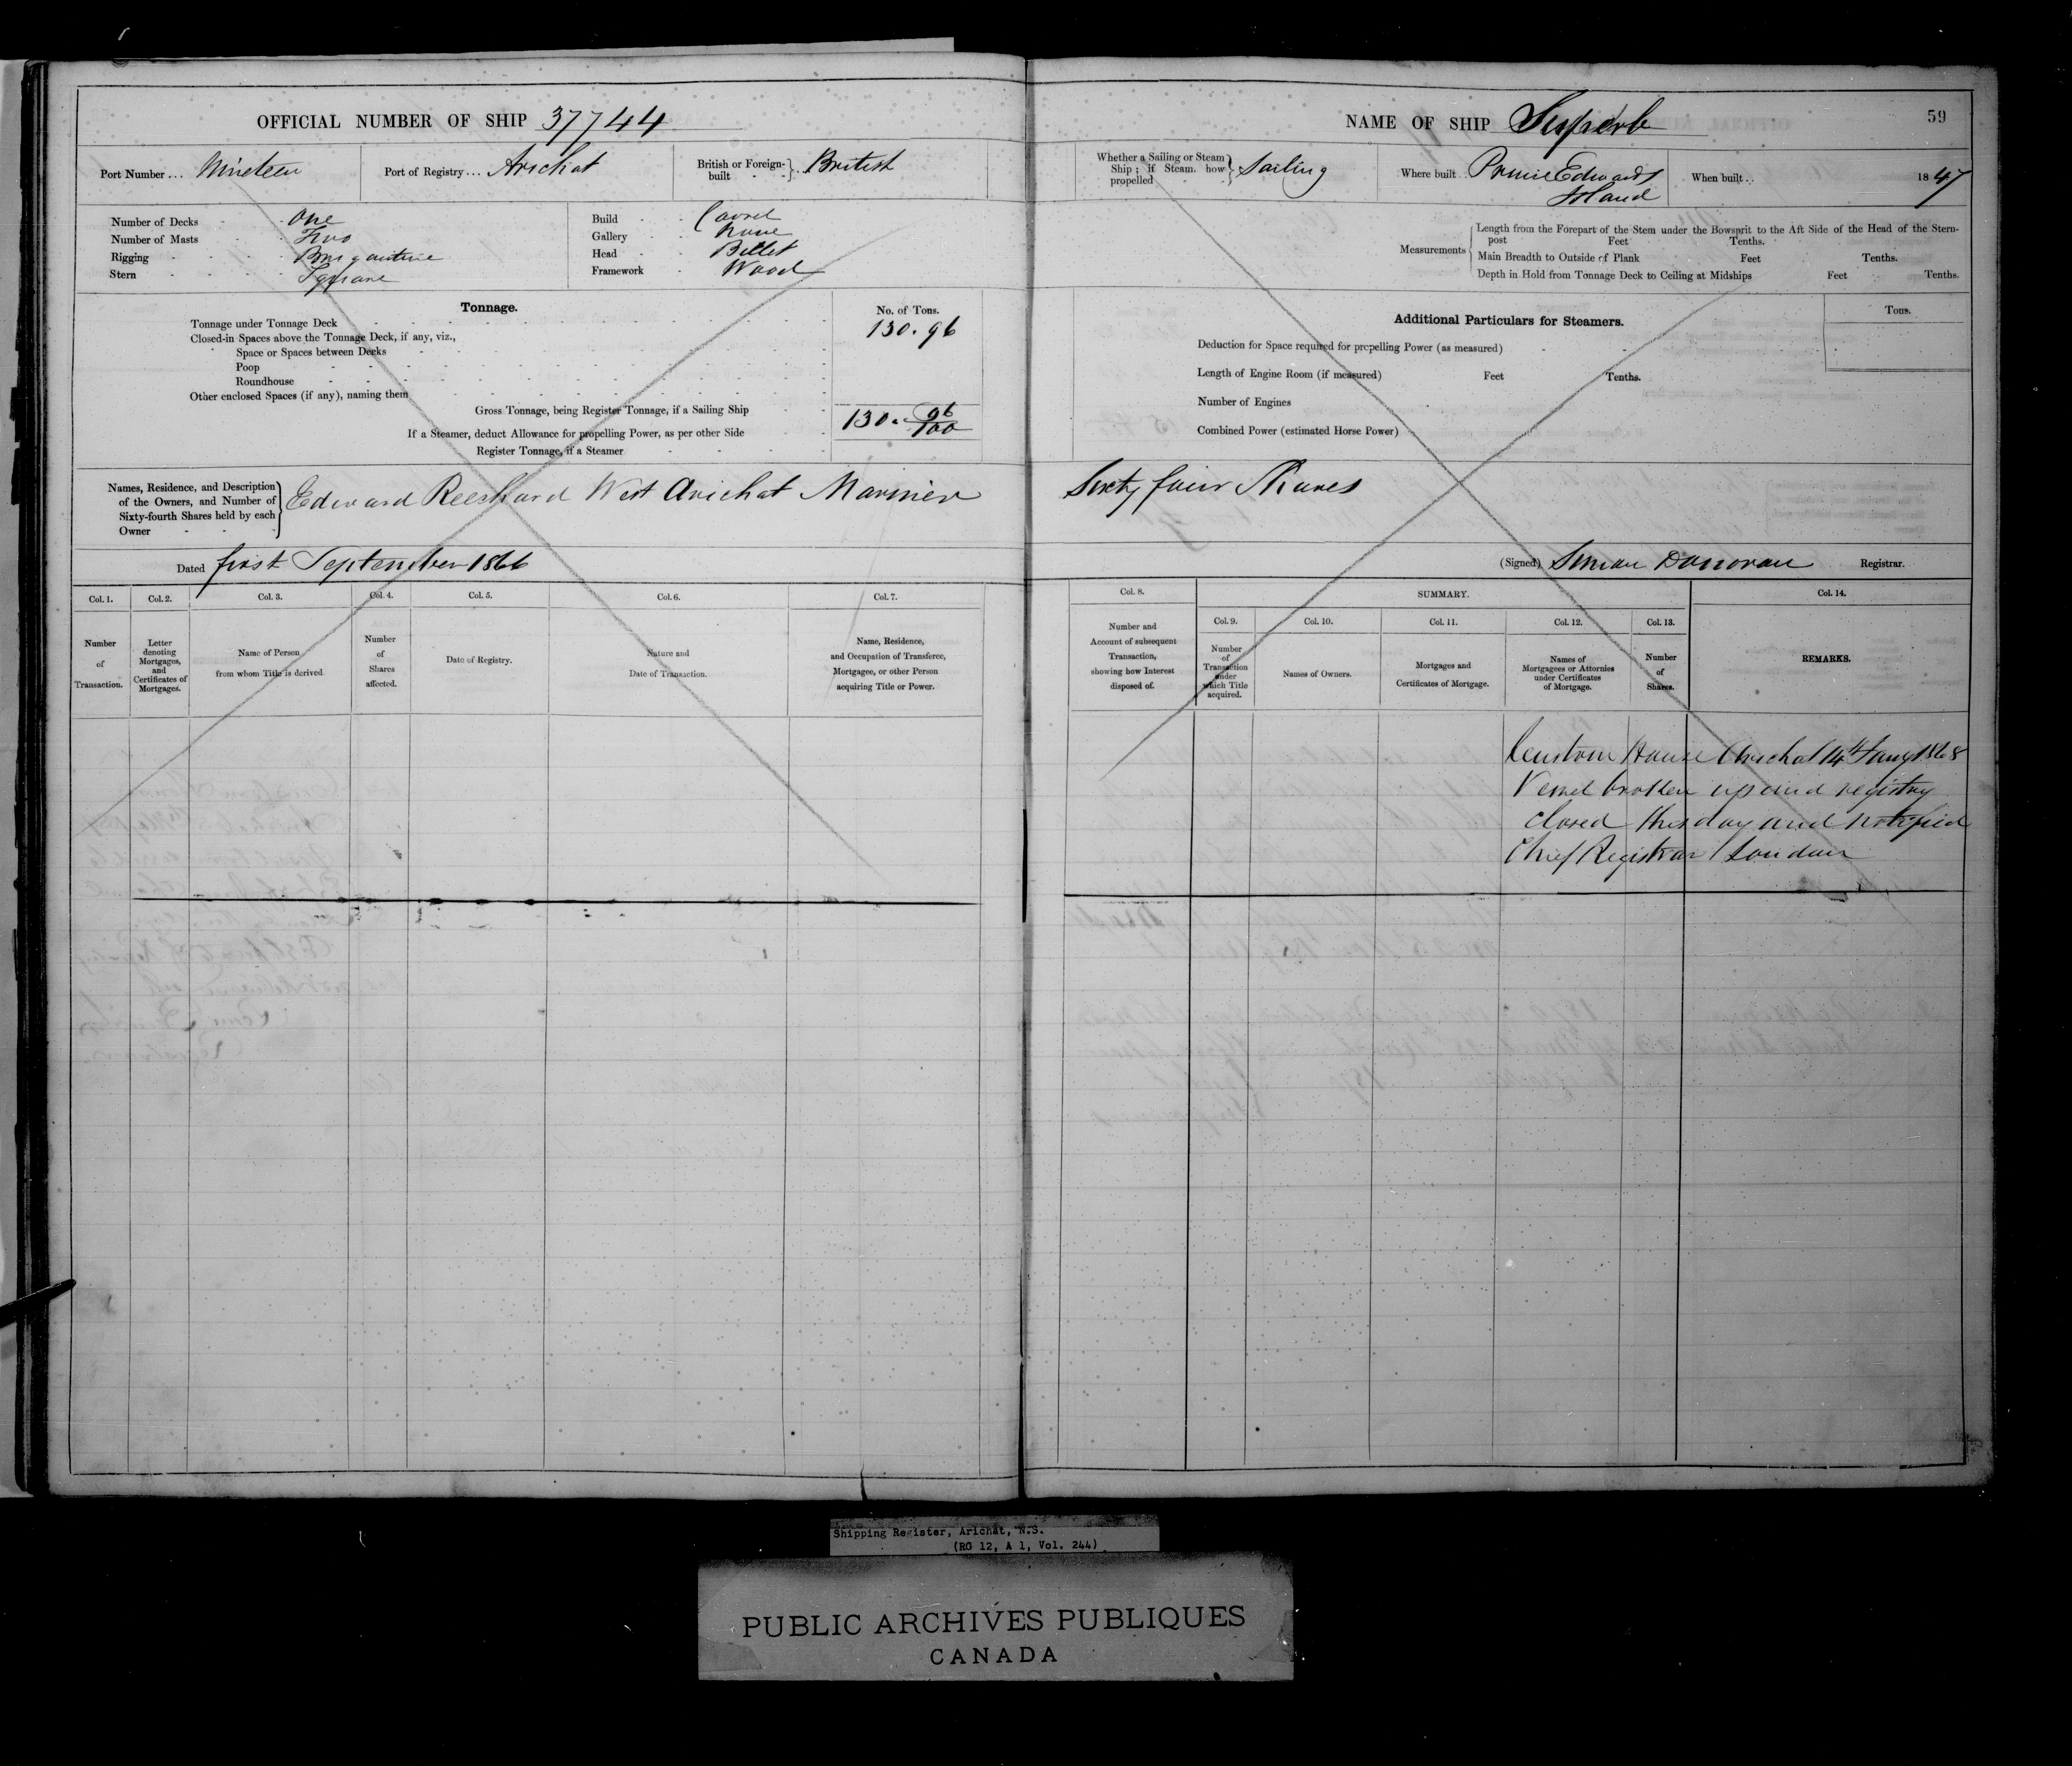 OFFICIAL NUMBER OF SHIP 37744
Port Number ... Nineteen
Port of Registry ... Arichat
British or Foreign-built } British
Number of Decks One
Number of Masts Two
Rigging Brigantine
Stern Square
Build Carvel
Gallery None
Head Billet
Framework Wood
Tonnage.
No. of Tons.
Tonnage under Tonnage Deck 130.96
Closed-in Spaces above the Tonnage Deck, if any, viz.,
Space or Spaces between Decks
Poop
Roundhouse
Other enclosed Spaces (if any), naming them
Gross Tonnage, being Register Tonnage, if a Sailing Ship 130. 96/100
If a Steamer, deduct Allowance for propelling Power, as per other Side
Register Tonnage, if a Steamer
Names, Residence, and Description
of the Owners, and Number of
Sixty-fourth Shares held by each
Owner
Edward West Arichat Mariner
Dated first September 1866
Col. 1. Col. 2. Col. 3. Col. 4. Col. 5. Col. 6. Col. 7.
Number of Transaction.
Letter denoting Mortgages, and Certificates of Mortgages.
Name of Person from whom Title is derived
Number of Shares affected.
Date of Registry.
Nature and Date of Transaction.
Name, Residence, and Occupation of Transferee, Mortgagee, or other Person acquiring Title or Power.
NAME OF SHIP Superb
59
Whether a Sailing or Steam Ship; if Steam, how propelled } Sailing
Where built .. Prince Edward
Island
When built .. 1847
Measurements
Length from the Forepart of the Stem under the Bowsprit to the Aft Side of the Head of the Stern-
post Feet Tenths.
Main Breadth to Outside of Plank Feet Tenths.
Depth in Hold from Tonnage Deck to Ceiling at Midships Feet Tenths.
Additional Particulars for Steamers.
Tons.
Deduction for Space required for propelling Power (as measured)
Length of Engine Room (if measured) Feet Tenths.
Number of Engines
Combined Power (estimated Horse Power)
Sixty four Shares
(Signed) Simon Donovan Registrar.
Col. 8. SUMMARY. Col. 14.
Col. 9. Col. 10. Col. 11. Col. 12. Col. 13.
Number and Account of subsequent Transaction, showing how Interest disposed of.
Number of Transaction under which Title acquired.
Names of Owners.
Mortgages and Certificates of Mortgage.
Names of Mortgagees or Attornies under Certificates of Mortgage.
Number of Shares.
REMARKS.
Custom House Arichat 14th Jany 1868
Vessel broken up and registry
closed this day and notified
Chief Registrar London
Shipping Register, Arichat, N.S.
(RG 12, A 1, Vol. 244)
PUBLIC ARCHIVES PUBLIQUES
CANADA